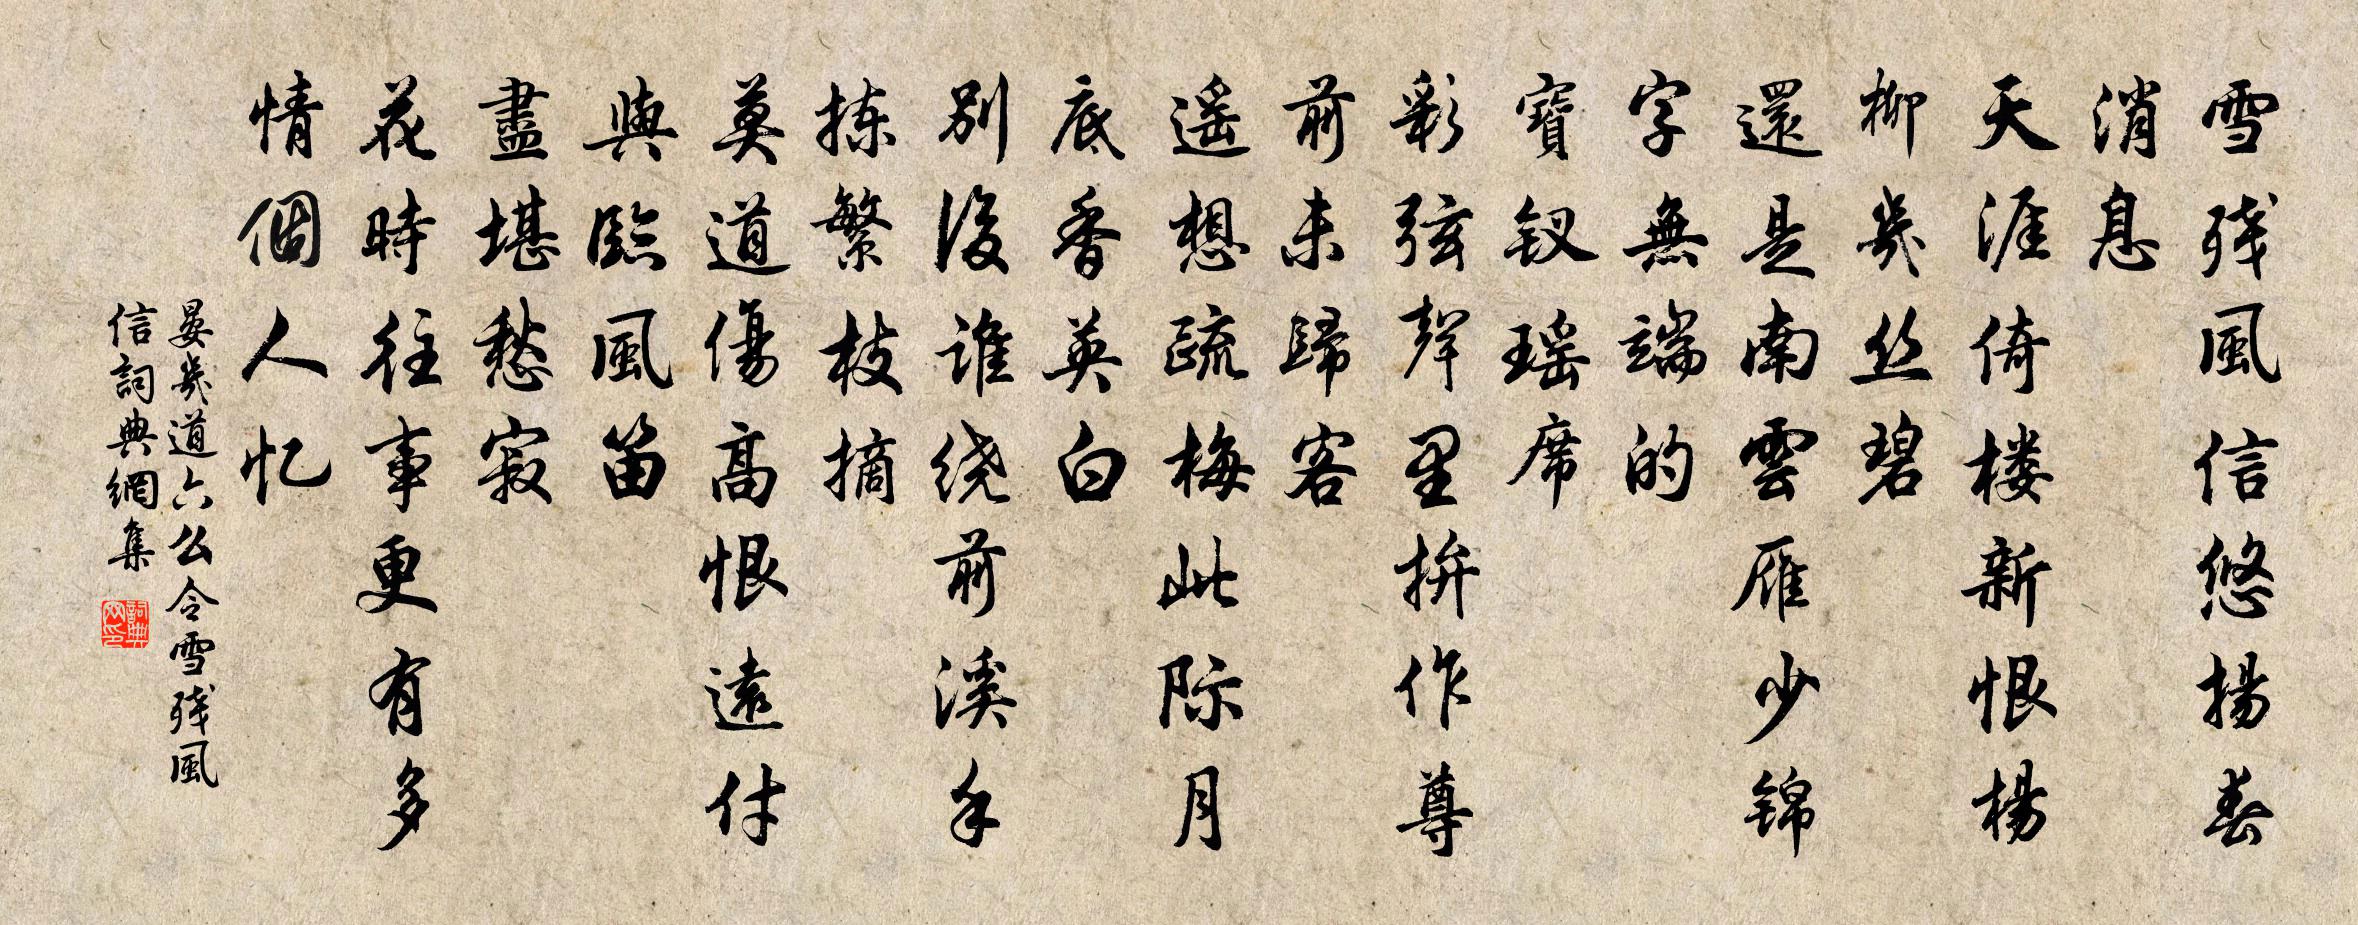 雪残風信悠揚春
消息
天涯倚楼新恨楊
柳幾丝碧
還是南雲雁少锦
字無端的
寶钗瑶席
彩弦聲里拚作尊
前未歸客
遥想疏梅此际月
底香英白
别後谁绕前溪手
拣繁枝摘
莫道傷高恨遠付
與臨風笛
盡堪愁寂
花時往事更有多
情個人忆
晏幾道六么令雪残風
信詞典網集
詞典網印